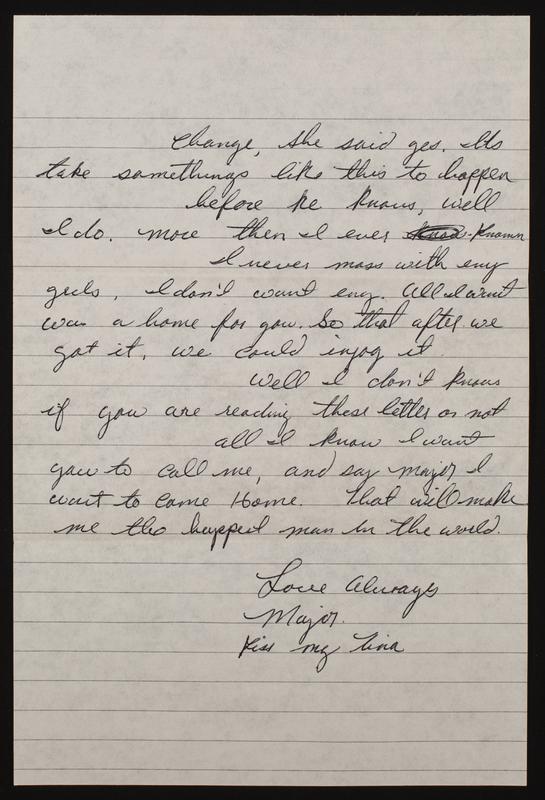 Change, she said yes. Its
take somethings like this to happen
before he knows, well
I do. more then I ever knows-known
I never mass with eny
girls, I don't want eny. All I want
was a home for you. So that after we
got it, we could injoy it
Well I don't know
if you are reading these letter or not
all I know I want
you to call me, and say Major I
want to come Home. That will make
me the happest man in the world.
Love Always
Major.
Kiss my Tina